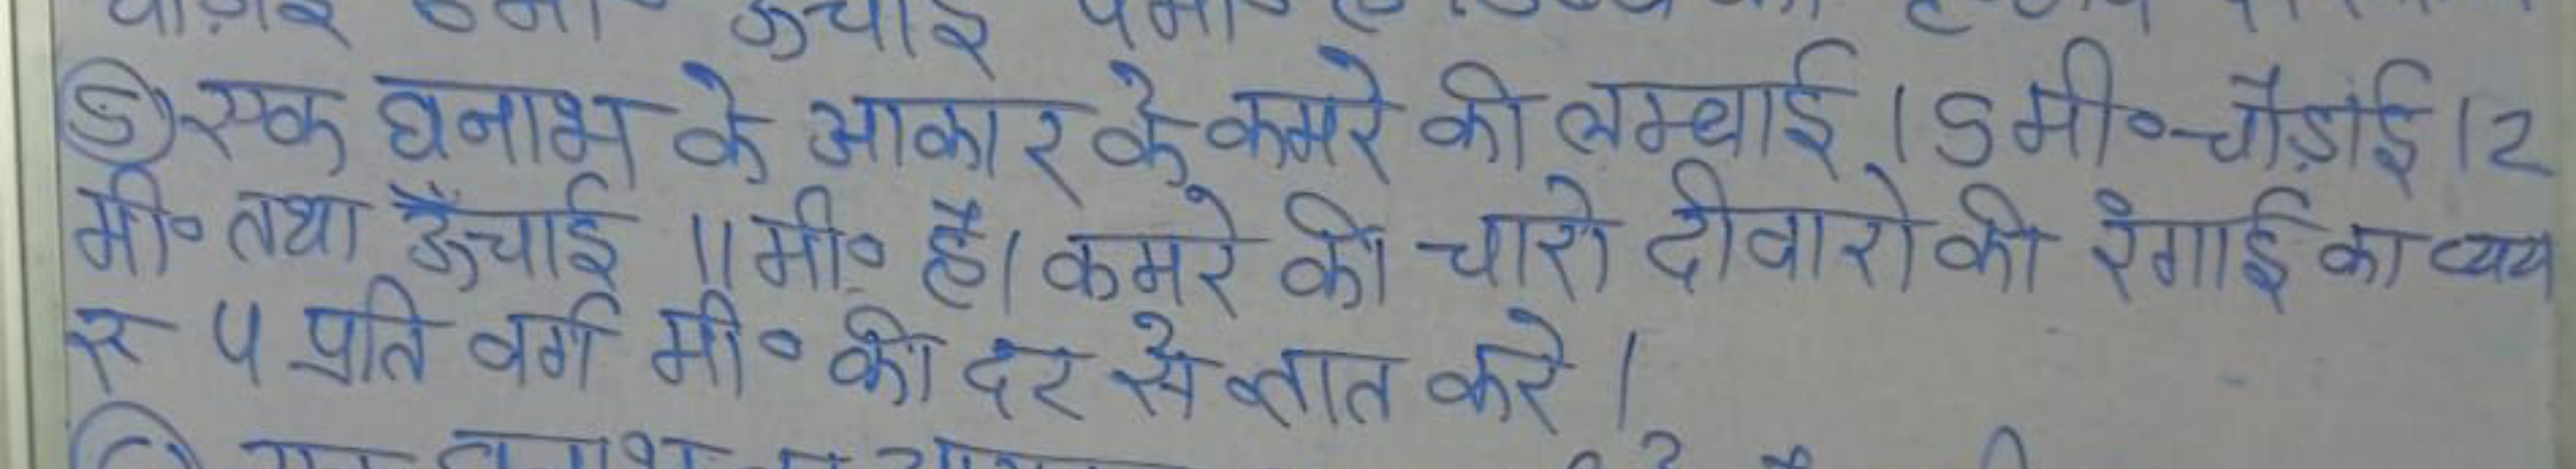 ऊचाई
(5) एक घनाभ के आकार के कमरे की लम्बाई 15 मी० चौड़ाई 12
मी० तथा ऊँचाई 11 मी० है। कमरे की चारो दीवारो की रंगाई का व्यय
रु 4 प्रति वर्ग मी० की दर से ज्ञात करे।